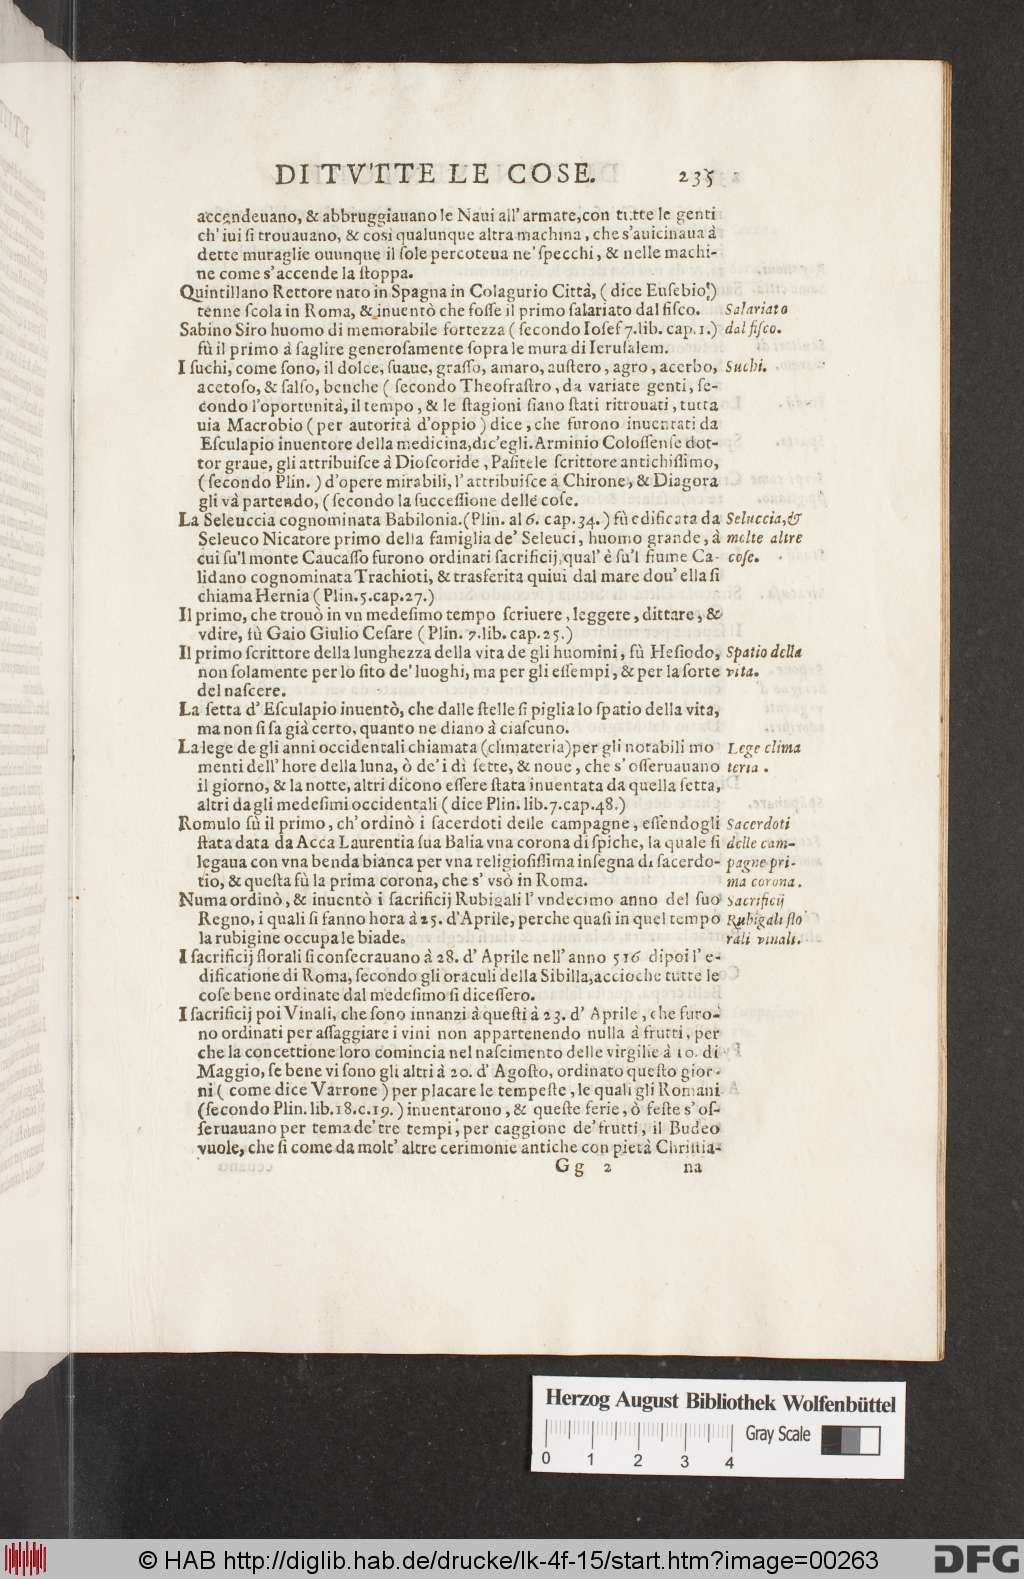 DI TVTTE LE COSE. 235
accendeuano, & abbruggiauano le Naui all'armate,con tutte le genti
ch'iui ſi trouauano, & così qualunque altra machina, che s'auicinaua à
dette muraglie ouunque il ſole percoteua ne' ſpecchi, & nelle machi-
ne come s'accende la ſtoppa.
Quintillano Rettore nato in Spagna in Colagurio Città, ( dice Euſebio.)
tenne ſcola in Roma, & inuentò che foſſe il primo ſalariato dal fiſco. Salariato
Sabino Siro huomo di memorabile fortezza ( ſecondo Ioſef 7.lib. cap.1.) dal fiſco.
fù il primo à ſaglire generoſamente ſopra le mura di Ieruſalem.
I ſuchi, come ſono, il dolce, ſuaue, graſſo, amaro, auſtero, agro, acerbo, Suchi.
acetoſo, & ſalſo, benche ( ſecondo Theofraſtro, da variate genti, ſe-
condo l'oportunità, il tempo, & le ſtagioni ſiano ſtati ritrouati, tutta
uia Macrobio ( per autorità d'oppio ) dice, che furono inuentati da
Eſculapio inuentore della medicina,dic'egli. Arminio Coloſſenſe dot-
tor graue, gli attribuiſce à Dioſcoride, Paſitele ſcrittore antichiſſimo,
( ſecondo Plin. ) d'opere mirabili, l'attribuiſce à Chirone, & Diagora
gli và partendo, ( ſecondo la ſucceſſione delle coſe.
La Seleuccia cognominata Babilonia.(Plin. al 6. cap.34. ) fù edificata da Seluccia,&
Seleuco Nicatore primo della famiglia de' Seleuci, huomo grande, à molte altre
cui ſu'l monte Caucaſſo furono ordinati ſacrificij, qual' è ſu'l fiume Ca- coſe.
lidano cognominata Trachioti, & trasferita quiui dal mare dou' ella ſi
chiama Hernia ( Plin.5.cap.27.)
Il primo, che trouò in vn medeſimo tempo ſcriuere, leggere, dittare, &
vdire, fù Gaio Giulio Ceſare ( Plin. 7.lib. cap.25.)
Il primo ſcrittore della lunghezza della vita de gli huomini, fù Heſiodo, Spatio della
non ſolamente per lo ſito de' luoghi, ma per gli eſſempi, & per la ſorte vita.
del naſcere.
La ſetta d' Eſculapio inuentò, che dalle ſtelle ſi piglia lo ſpatio della vita,
ma non ſi ſa già certo, quanto ne diano à ciaſcuno.
La lege de gli anni occidentali chiamata (climateria)per gli notabili mo Lege clima
menti dell' hore della luna, ò de' i dì ſette, & noue, che s' oſſeruauano teria.
il giorno, & la notte, altri dicono eſſere ſtata inuentata da quella ſetta,
altri da gli medeſimi occidentali ( dice Plin. lib.7.cap.48.)
Romulo fù il primo, ch'ordinò i ſacerdoti delle campagne, eſſendogli Sacerdoti
ſtata data da Acca Laurentia ſua Balia vna corona di ſpiche, la quale ſi delle cam-
legaua con vna benda bianca per vna religioſiſſima inſegna di ſacerdo- pagne pri-
tio, & queſta fù la prima corona, che s' vsò in Roma. ma corona.
Numa ordinò, & inuentò i ſacrificij Rubigali l' vndecimo anno del ſuo Sacrificij
Regno, i quali ſi fanno hora à 25. d'Aprile, perche quaſi in quel tempo Rubigali flo
la rubigine occupa le biade. rali vinali.
I ſacrificij florali ſi conſecrauano à 28. d' Aprile nell' anno 516 dipoi l' e-
dificatione di Roma, ſecondo gli oraculi della Sibilla,accioche tutte le
coſe bene ordinate dal medeſimo ſi diceſſero.
I ſacrificij poi Vinali, che ſono innanzi à queſti à 23. d' Aprile, che furo-
no ordinati per aſſaggiare i vini non appartenendo nulla à frutti, per
che la concettione loro comincia nel naſcimento delle virgilie à 10. di
Maggio, ſe bene vi ſono gli altri à 20. d' Agoſto, ordinato queſto gior-
ni ( come dice Varrone ) per placare le tempeſte, le quali gli Romani
(ſecondo Plin. lib.18.c.19. ) inuentarono, & queſte ferie, ò feſte s' oſ-
ſeruauano per tema de' tre tempi, per caggione de' frutti, il Budeo
vuole, che ſi come da molt' altre cerimonie antiche con pietà Chriſtia-
G g 2 na
Herzog August Bibliothek Wolfenbüttel
Gray Scale
0 1 2 3 4
© HAB http://diglib.hab.de/drucke/lk-4f-15/start.htm?image=00263
DFG